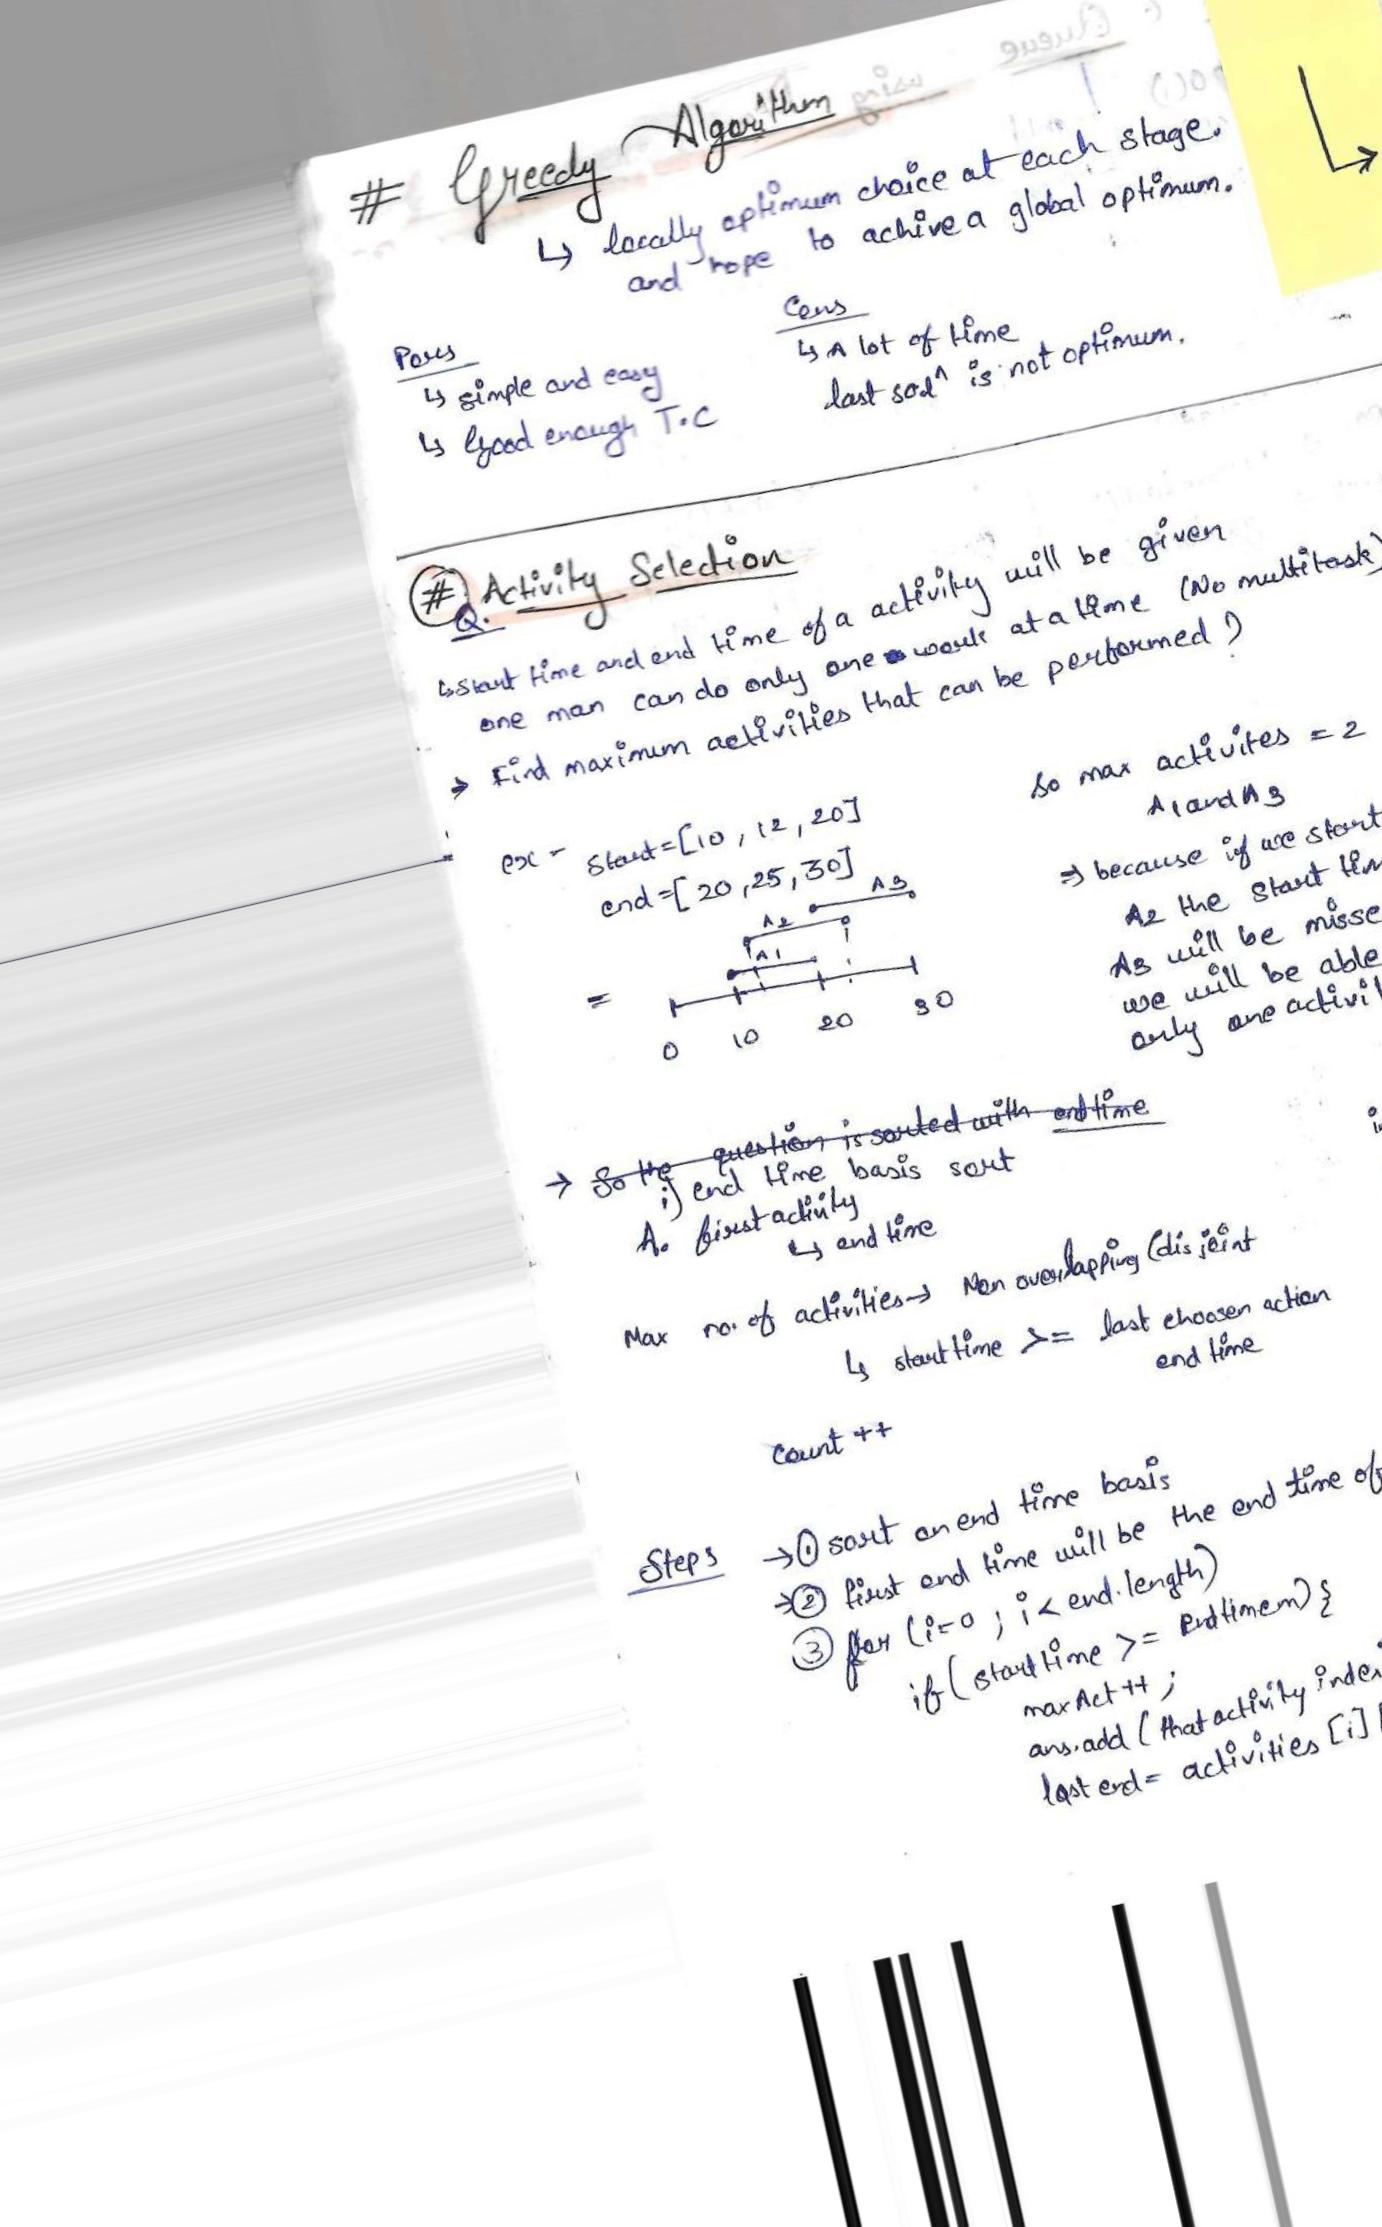 # Greedy Algorithm
↳ locally optimum choice at each stage.
and hope to achive a global optimum.
Pros
↳ simple and easy
↳ Good enough T.C
Cons
↳ A lot of time
last solⁿ is not optimum.
# Activity Selection
Q.
↳ Start time and end time of a activity will be given
one man can do only one work at a time (No multitask)
→ Find maximum activities that can be performed?
ex - Start=[10, 12, 20]
end=[20, 25, 30]
A3
A2
A1
=
0 10 20 30
So max activites = 2
A1 and A3
⇒ because if we start
A2 the start tim
A3 will be misse
we will be able
only one activi
→ So the question is sorted with end time
i) end time basis sort
A. first activity
↳ end time
Max no. of activities → Non overlapping (disjoint
↳ start time >= last choosen action
end time
count ++
Steps → ① sort on end time basis
→ ② first end time will be the end time of
③ for (i=0 ; i < end.length)
if (start time >= End timem) {
max Act ++ ;
ans.add ( that activity index
last end = activities [i]